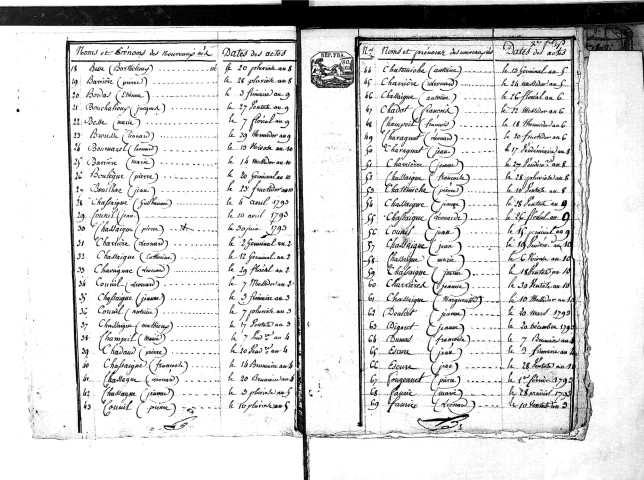 Noms et Prénoms des Nouveaux nés Dates des actes
18 Basse (Barthelemy) le 20 pluviose an 8
19 Barrière (pierre) le 28 pluviose an 8
20 Bordas (Etienne) le 3 frimaire an 9
21 Bouchaloux (jacques) le 27 Ventose an 9
22 Besse (marie) le 7 floréal an 9
23 Brousse (leonard) le 29 thermidor an 9
24 Bournazel (leonard) le 13 Nivose an 10
25 Barrière (marie) le 14 messidor an 10
26 Boutoque (pierre) le 20 Germinal an 10
27 Bouilhac (jean) le 23 fructidor an 10
28 Chassaigne (Guillaume) le 6 avril 1793
29 Couril (jean) le 10 avril 1793
30 Chassaigne (pierre) le 30 juin 1793
31 Charrière (leonard) le 2 Germinal an 2
32 Chassaigne (Catherine) le 12 Germinal an 2
33 Chavagnac (leonard) le 29 floréal an 2
34 Couril (leonard) le 7 Messidor an 2
35 Chassaigne (jeanne) le 3 frimaire an 3
36 Couril (antoine) le 7 pluviose an 3
37 Chassaigne (mathieu) le 17 Ventose an 3
38 Champeil (marie) le 7 Vend.re an 4
39 Chadaud (pierre) le 20 Vend.re an 4
40 Chassaigne (françoise) le 14 Brumaire an 4
41 Chassagne (leonard) le 20 Brumaire an 4
42 Chassagne (jeanne) le 3 pluviose an 5
43 Couril (pierre) le 16 pluviose an 5
REP. FRA.
N.os Noms et prénoms des nouveaux nés Dates des actes
44 Chateuniche (antoine) le 13 Germinal an 5
45 Charrière (leonard) le 24 messidor an 5
46 Chassaigne (antoine) le 26 floréal an 6
47 Chadot (françois) le 22 Messidor an 6
48 Champeil (leonard) le 18 thermidor an 6
49 Charagnat (leonard) le 20 fructidor an 6
50 Charagnat (jean) le 17 Vendémiaire an 8
51 Charrière (jeanne) le 27 Vendém.re an 8
52 Chassaigne (françoise) le 28 pluviose an 8
53 Chateniche (pierre) le 18 Ventose an 8
54 Chassaigne (jeanne) le 28 Ventose an 9
55 Chassaigne (leonarde) le 26 floréal an 9
56 Couril (jean) le 15 Germinal an 9
57 Chassaigne (jean) le 19 Vendem.re an 10
58 Chassaigne (marie) le 6 Nivose an 10
59 Chassaigne (jeanne) le 18 Ventose an 10
60 Charrière (jeanne) le 30 Ventose an 10
61 Chassaigne (Margueritte) le 10 Messidor an 10
62 Doulcet (jeanne) le 20 mars 1793
63 Digout (jeanne) le 20 décembre 1793
64 Dumas (françoise) le 7 Brumaire an 4
65 Escure (jean) le 3 frimaire an 4
66 Escure (jean) le 28 Ventose an 10
67 Fougeanet (pierre) le 1.er février 1793
68 Faurie (marie) le 28 avril 1793
69 Faurie (leonard) le 10 Ventose an 3